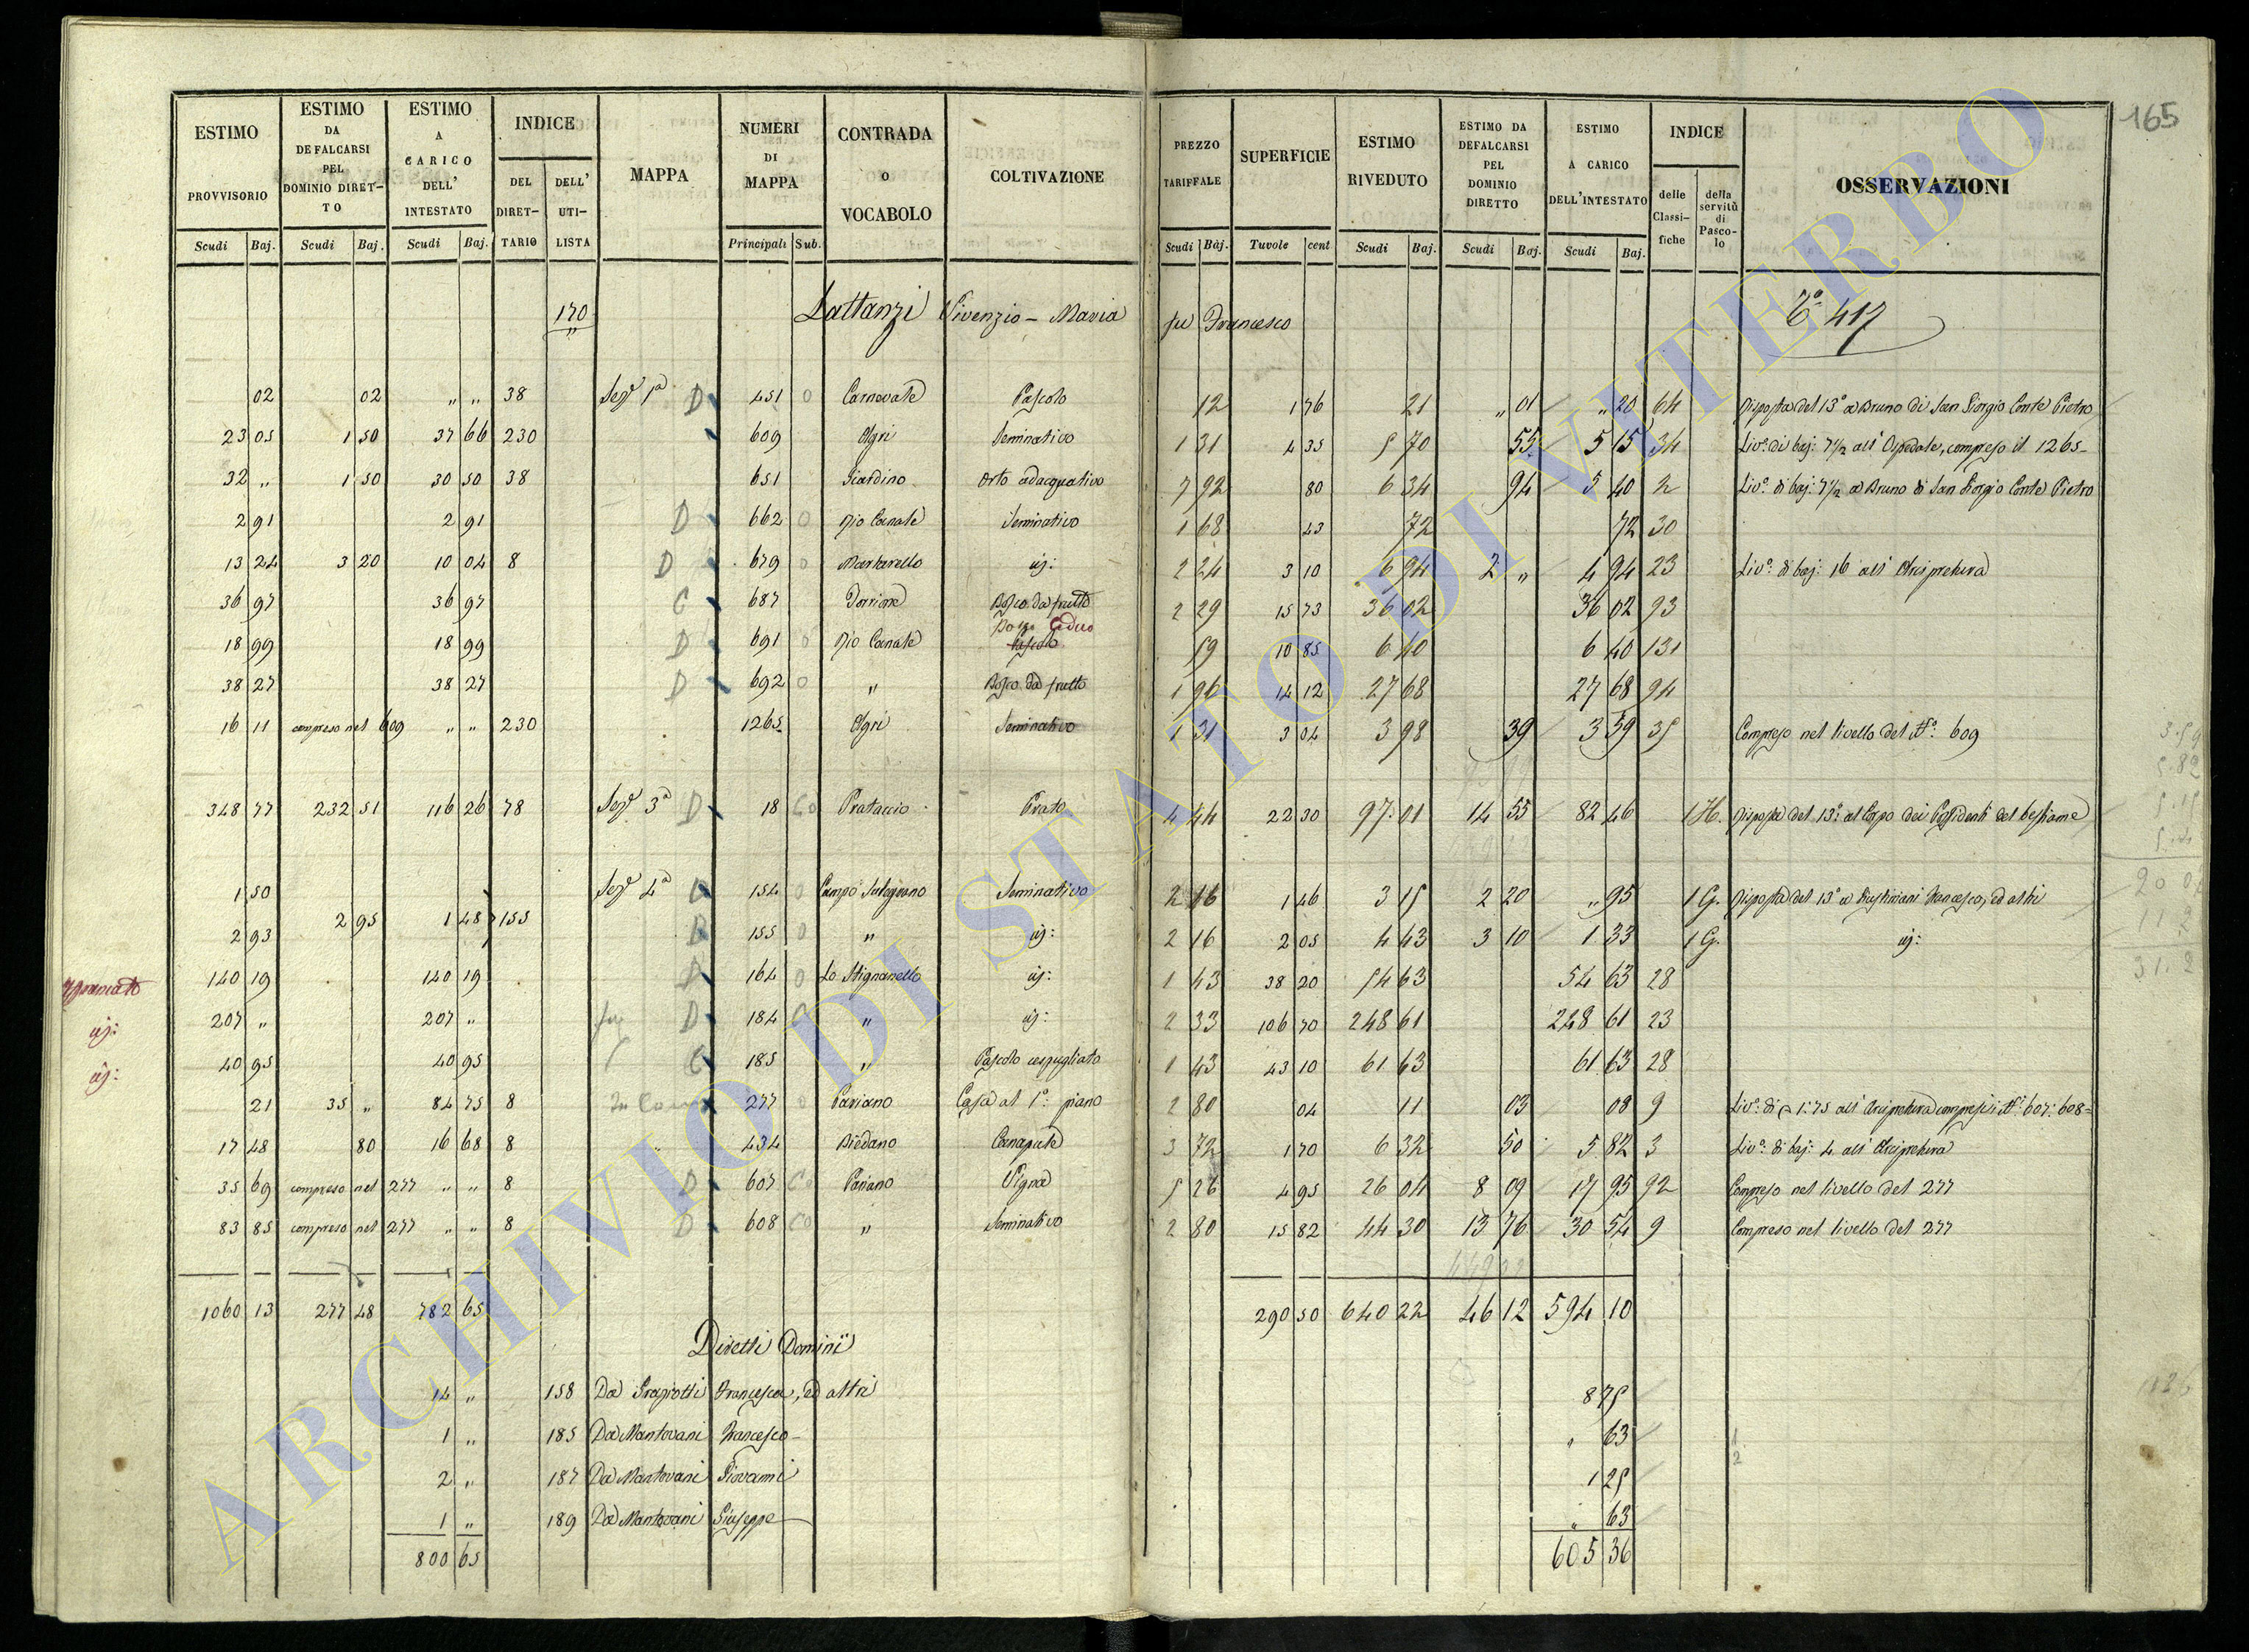 165
ESTIMO PROVVISORIO Scudi Baj. ESTIMO DA DEFALCARSI PEL DOMINIO DIRETTO Scudi Baj. ESTIMO A CARICO DELL' INTESTATO Scudi Baj. INDICE DEL DIRETTARIO DELL' UTILISTA MAPPA NUMERI DI MAPPA Principali Sub. CONTRADA O VOCABOLO COLTIVAZIONE PREZZO TARIFFALE Scudi Baj. SUPERFICIE Tavole cent ESTIMO RIVEDUTO Scudi Baj. ESTIMO DA DEFALCARSI PEL DOMINIO DIRETTO Scudi Baj. ESTIMO A CARICO DELL'INTESTATO Scudi Baj. INDICE delle Classifiche della servitù di Pascolo OSSERVAZIONI
170 Lattanzi Vivenzio - Maria fu Francesco 417
02 02 „ „ 38 Sez.e 1a D 451 0 Carnovale Pascolo 12 1 76 21 „ 01 „ 20 64 Risposta del 13° a Bruno di San Giorgio Conte Pietro
23 05 1 50 37 66 230 609 Agri Seminativo 1 31 4 35 5 70 55 5 15 34 Liv.o di baj: 7 1/2 all' Ospedale, compreso il 1265
32 „ 1 50 30 50 38 651 Giardino Orto adacquativo 7 92 80 6 34 94 5 40 2 Liv.o di baj: 7 1/2 a Bruno di San Giorgio Conte Pietro
2 91 2 91 D 662 0 Rio Canale Seminativo 1 68 43 72 72 30
13 24 3 20 10 04 8 D 679 0 Martarello uj: 2 24 3 10 6 94 2 „ 4 94 23 Liv.o di baj: 16 all' Arcipretura
36 97 36 97 C 687 Torrione Bosco da frutto 2 29 15 73 36 02 36 02 93
Ceduo
18 99 18 99 D 691 0 Rio Canale Pascolo 59 10 85 6 40 6 40 131
38 27 38 27 D 692 0 „ Bosco da frutto 1 96 14 12 27 68 27 68 94
16 11 compreso nel 609 „ „ 230 1265 Agri Seminativo 1 31 3 04 3 98 39 3 59 35 Compreso nel livello del N.o 609
348 77 232 51 116 26 78 Sez.e 3a D 18 Prataccio Prato 4 44 22 30 97 01 14 55 82 46 1 H. Risposta del 13° al Corpo dei Possidenti del bestiame
1 50 Sez.e 4a 154 0 Campo Seminativo 2 16 1 46 3 15 2 20 „ 95 1 G. Risposta del 13° a Giustiniani Francesco, ed altri
2 93 2 95 1 48 155 D 155 0 „ uj: 2 16 2 05 4 43 3 10 1 33 1 G. uj:
140 19 140 19 D 164 0 Lo Stignanello uj: 1 43 38 20 54 63 54 63 28
uj: 207 „ 207 „ D 184 „ uj: 2 33 106 70 248 61 248 61 23
uj: 40 95 40 95 C 185 „ Pascolo cespugliato 1 43 43 10 61 63 61 63 28
21 35 „ 84 75 8 277 0 Pariano Casa al 1° piano 2 80 04 11 03 08 9 Liv.o di 1:75 all' Arcipretura compresi i N.i 607: 608
17 48 80 16 68 8 434 Biedano Canapule 3 72 1 70 6 32 50 5 82 3 Liv.o di baj: 4 all' Arcipretura
35 69 compreso nel 277 „ „ 8 D 607 Pariano Vigna 5 26 4 95 26 04 8 09 17 95 92 Compreso nel livello del 277
83 85 compreso nel 277 „ „ 8 D 608 „ Seminativo 2 80 15 82 44 30 13 76 30 54 9 Compreso nel livello del 277
1060 13 277 48 782 65 290 50 640 22 46 12 594 10
Diretti Dominii
14 „ 158 Da Francesca, ed altri 8 75
1 „ 185 Da Mantovani Francesco „ 63
2 „ 187 Da Mantovani Giovanni 1 25
1 „ 189 Da Mantovani Giuseppe „ 63
800 65 605 36
ARCHIVIO DI STATO DI VITERBO